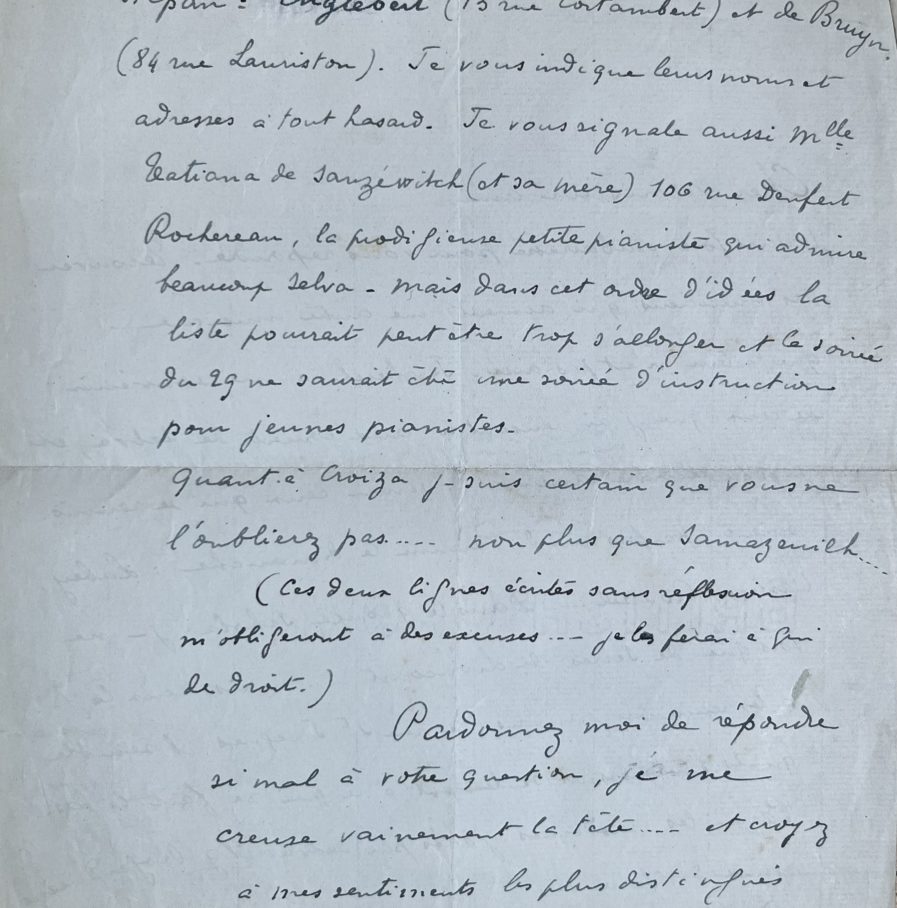 Englebert (15 rue Cortambert) et de Bruyn.
(84 rue Lauriston). Je vous indique leurs noms et
adresses à tout hasard. Je vous signale aussi Mlle
Tatiana de Sanzévitch (et sa mère) 106 rue Denfert
Rochereau, la prodigieuse petite pianiste qui admire
beaucoup Selva - mais dans cet ordre d'idées la
liste pourrait peut être trop s'allonger et la soirée
du 29 ne saurait être une soirée d'instruction
pour jeunes pianistes.
Quant à Croiza je suis certain que vous ne
l'oublierez pas.... non plus que Samazeuilh...
(Ces deux lignes écrites sans réflexion
m'obligeront à des excuses... je les ferai à qui
de droit.)
Pardonnez moi de répondre
si mal à votre question, je me
creuse vainement la tête.... et croyez
à mes sentiments les plus distingués